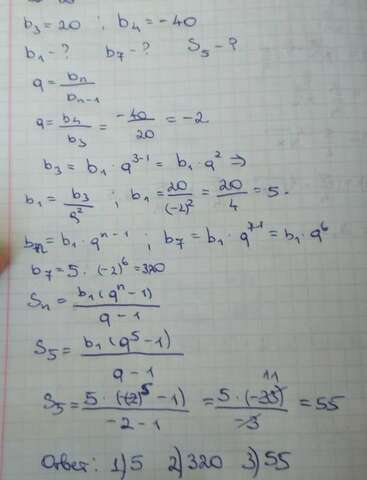 b₃ = 20 ; b₄ = -40
b₁ - ? b₇ - ? S₅ - ?
q = bₙ / bₙ₋₁
q = b₄ / b₃ = -40 / 20 = -2
b₃ = b₁ · q³⁻¹ = b₁ · q² ⇒
b₁ = b₃ / q² ; b₁ = 20 / (-2)² = 20 / 4 = 5.
bₙ = b₁ · qⁿ⁻¹ ; b₇ = b₁ · q⁷⁻¹ = b₁ · q⁶
b₇ = 5 · (-2)⁶ = 320
Sₙ = b₁(qⁿ - 1) / q - 1
S₅ = b₁(q⁵ - 1) / q - 1
S₅ = 5 · ((-2)⁵ - 1) / -2 - 1 = 5 · (-33) 11 / -3 = 55
Ответ: 1) 5 2) 320 3) 55